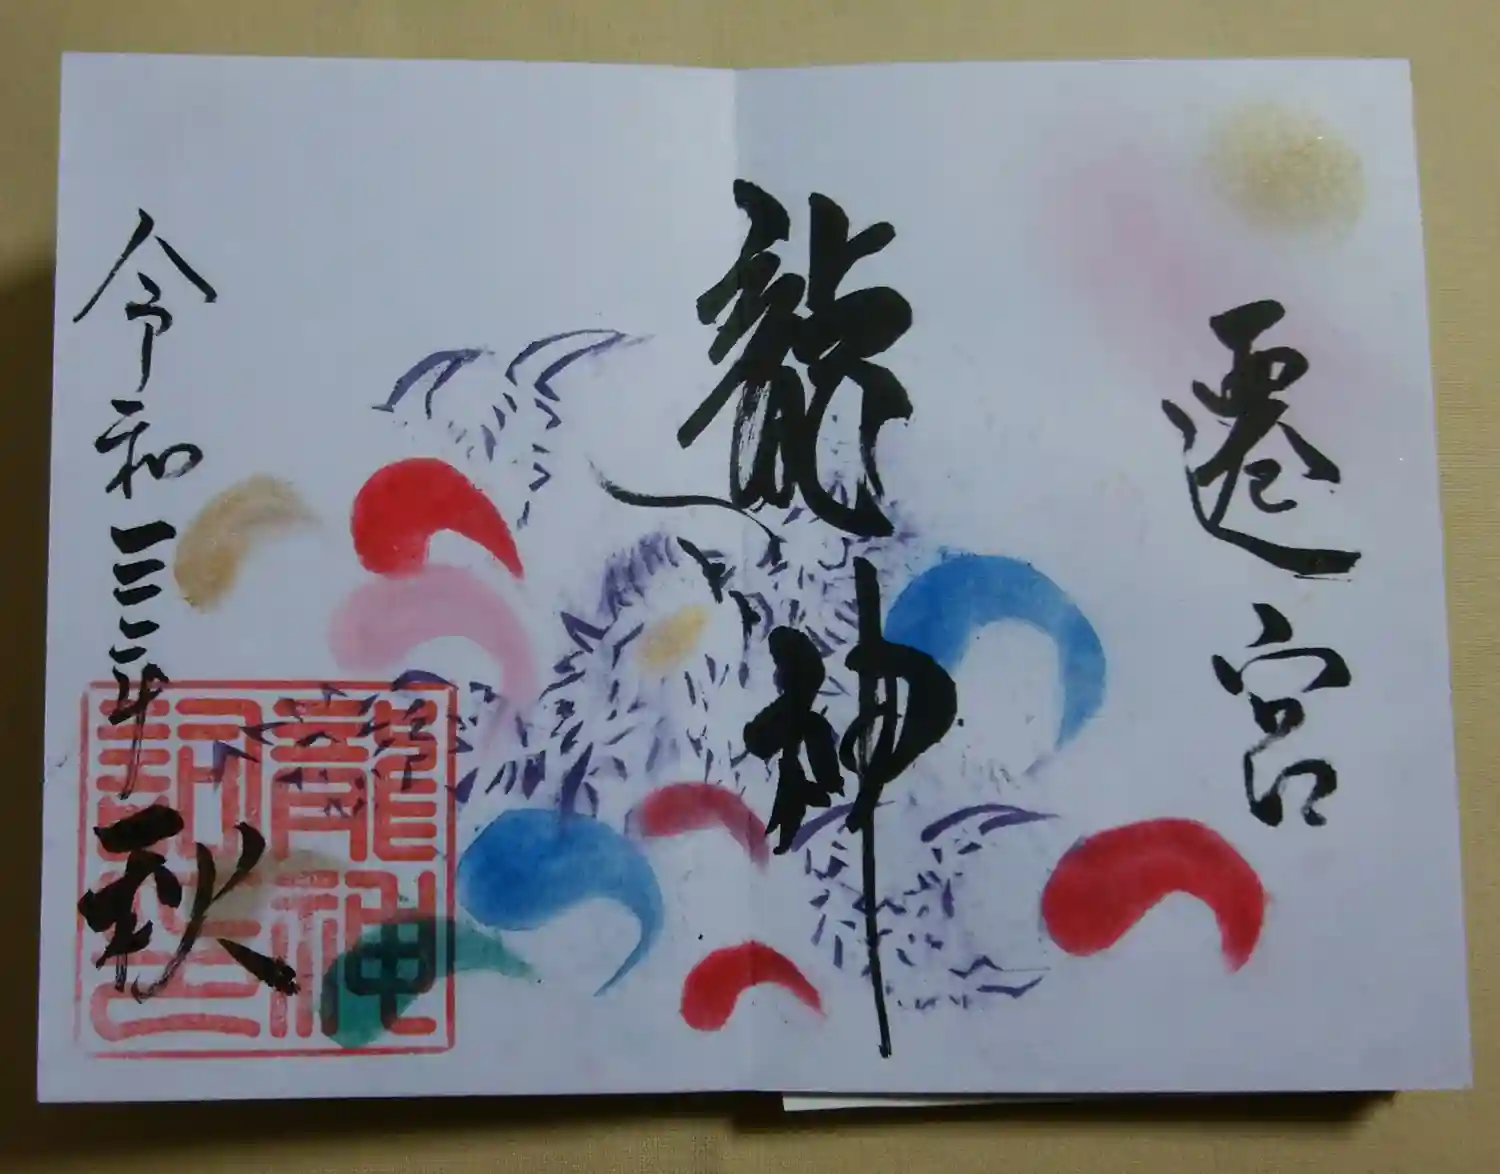 遷宮
龍神
令和三年秋
龍神